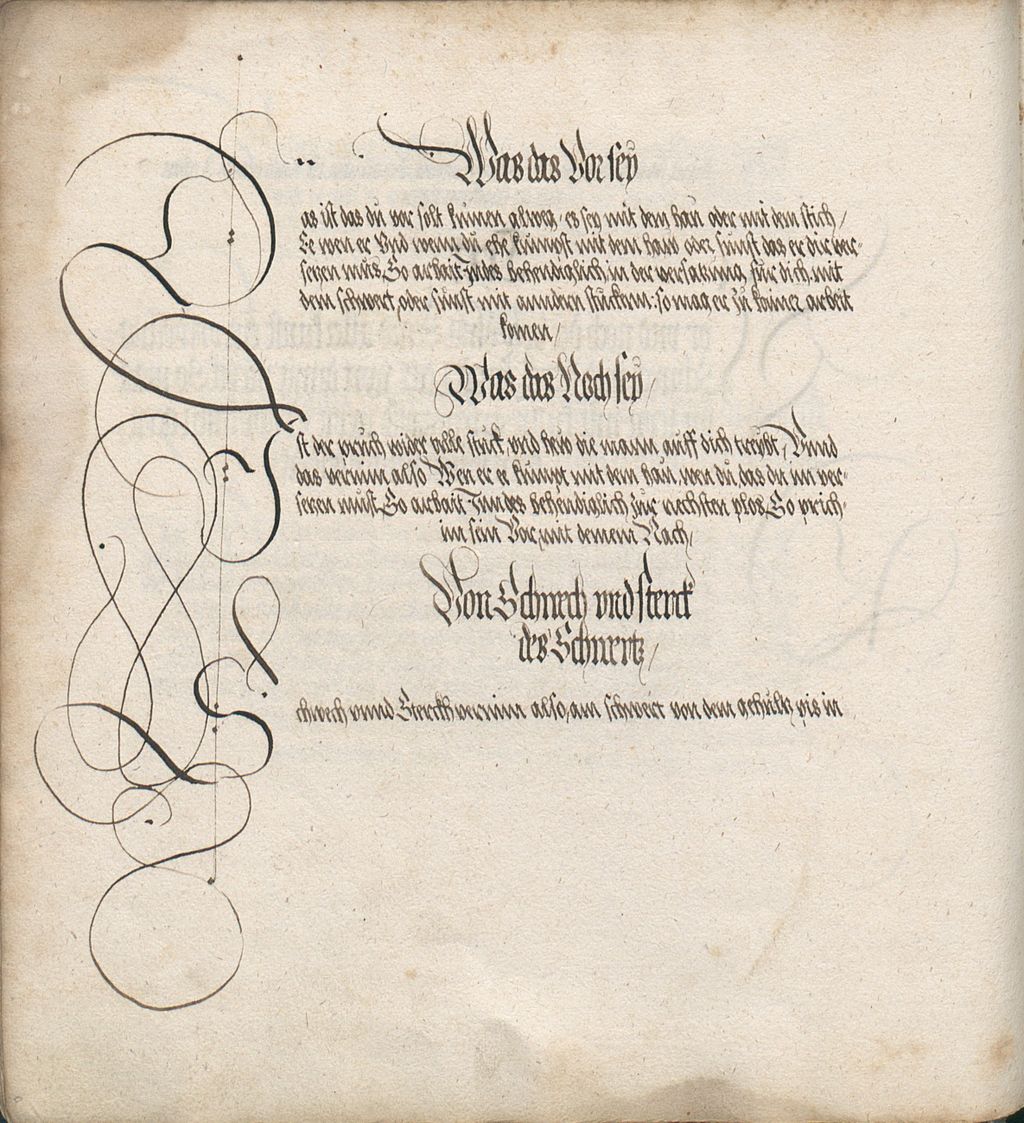 Was das Vor sey
Das ist das du vor solt kumen alweg, es sey mit dem hau oder mit dem stich /
Ee wen er Vnd wenn du ehe kumpst mit dem haw oder sunst das er dir ver-
setzen mus, So arbait Indes behendiglich in der versatzung für dich mit
dem schwert, oder sunst mit anndern stucken: so mag er zu keiner arbeit
komen /
Was das Noch sey /
Ist der pruch wider alle stuck, vnd hew die mann auff dich treybt, Vnnd
das vernim also Wen er er kumpt mit dem hau, wen du, das du im ver-
setzen must So arbait Inndes behendiglich zur nechsten plos, So prich
im sein Vor, mit deinem Nach /
Von Schwech vnd sterck
des Schwertz /
Schwech vnnd Sterckh vernim also, am schwert von dem gehultz pis in